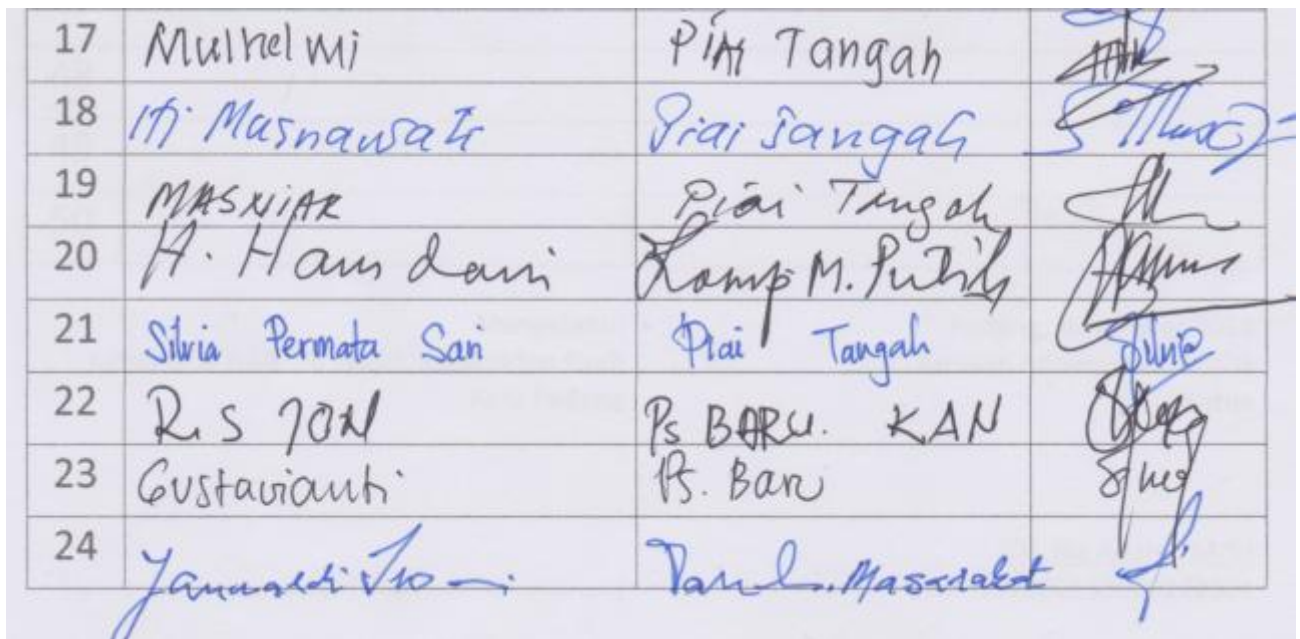 17 Mulhelmi Piai Tangah
18 Hj Masnawati Piai Tangah
19 MASNIAR Piai Tangah
20 H. Hamdani Kamp. M. Putih
21 Silvia Permata Sari Piai Tangah Silvia
22 R. S JON Ps BARU. KAN
23 Gustavianti Ps. Baru
24 Masarakat